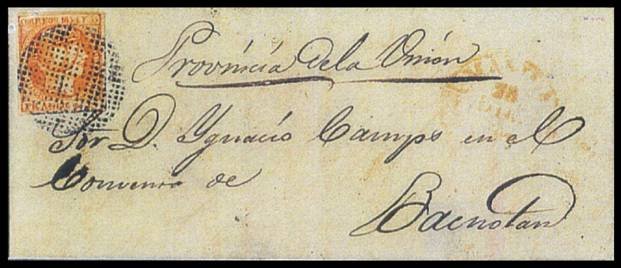 CORREOS 1854 Y 55
Provincia de la Unión
Por D. Ygnacio Camps en el
Convento de
Bacnotan